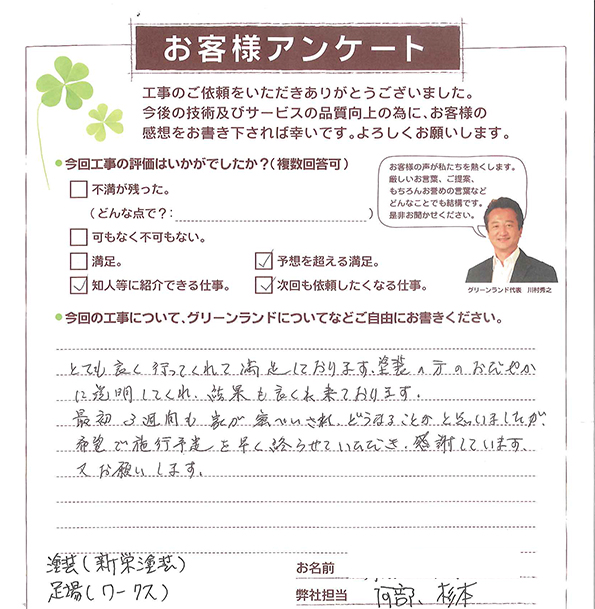 お客様アンケート
工事のご依頼をいただきありがとうございました。
今後の技術及びサービスの品質向上の為に、お客様の
感想をお書き下されば幸いです。よろしくお願いします。
今回工事の評価はいかがでしたか？（複数回答可）
不満が残った。
（どんな点で？：　）
可もなく不可もない。
満足。
予想を超える満足。
知人等に紹介できる仕事。
次回も依頼したくなる仕事。
お客様の声が私たちを熱くします。
厳しいお言葉、ご提案、
もちろんお誉めの言葉など
どんなことでも結構です。
是非お聞かせください。
グリーンランド代表　川村秀之
今回の工事について、グリーンランドについてなどご自由にお書きください。
とても良く行ってくれて満足しております、塗装の方のおだやか
に説明してくれ、結果も良く出来ております。
最初3週間も家が され、どうすることかと思いましたが、
希望で施行予定を早く終らせていただき、感謝しています、
又お願いします。
塗装（新栄塗装）
足場（ワークス）
お名前
弊社担当　阿部、杉本